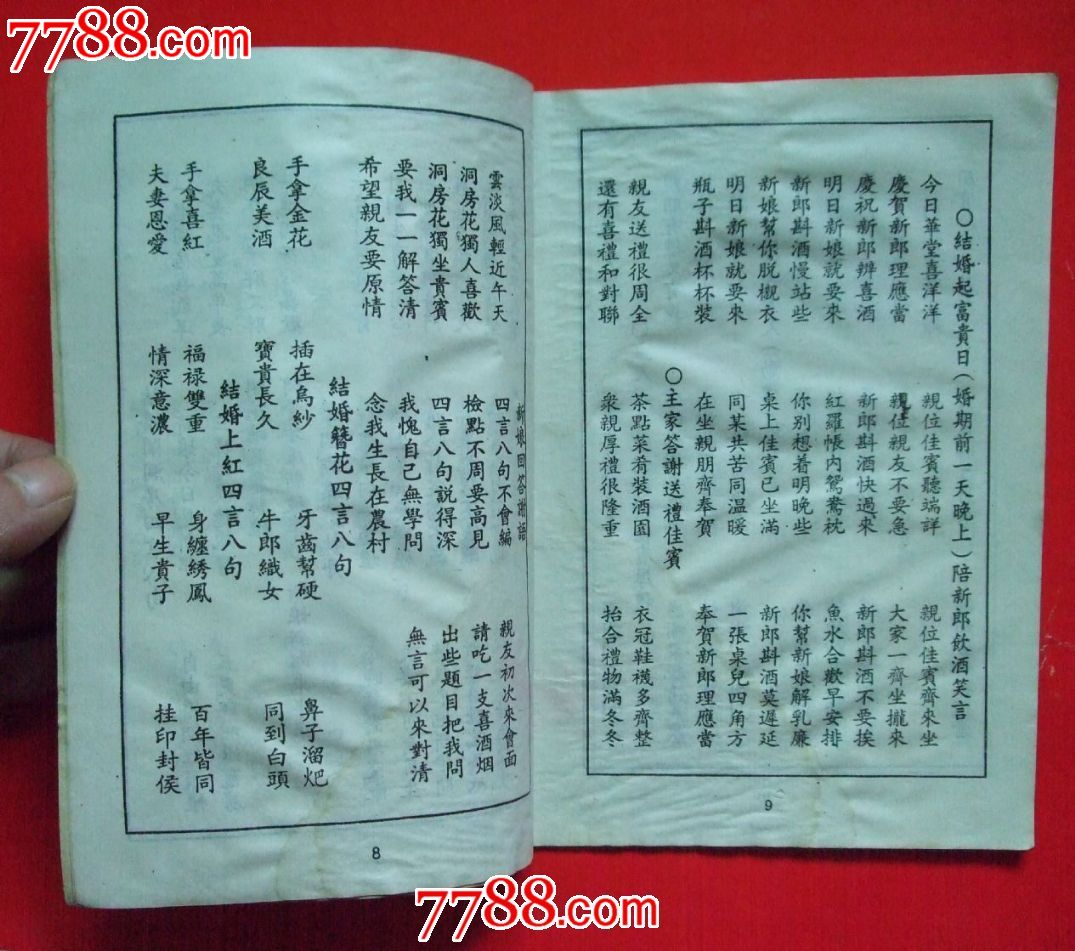 7788.com
新娘回答謝語
雲淡風輕近午天 四言八句不會編 親友初次來會面
洞房花獨人喜歡 檢點不周要高見 請吃一支喜酒烟
洞房花獨坐貴賓 四言八句說得深 出些題目把我問
要我一一解答清 我愧自己無學問 無言可以來對清
希望親友要原情 念我生長在農村
結婚簪花四言八句
手拿金花 插在烏紗 牙齒幫硬 鼻子溜㶽
良辰美酒 寶貴長久 牛郎織女 同到白頭
結婚上紅四言八句
手拿喜紅 福禄雙重 身纏綉鳳 百年皆同
夫妻恩愛 情深意濃 早生貴子 挂印封侯
8
〇結婚起富貴日(婚期前一天晚上)陪新郎飲酒笑言
今日華堂喜洋洋 親位佳賓聽端詳 親位佳賓齊來坐
慶賀新郎理應當 親位親友不要急 大家一齊坐攏來
慶祝新郎辦喜酒 新郎斟酒快過來 新郎斟酒不要挨
明日新娘就要來 紅羅帳内鴛鴦枕 魚水合歡早安排
新郎斟酒慢站些 你别想着明晚些 你幫新娘解乳廉
新娘幫你脱襯衣 桌上佳賓已坐滿 新郎斟酒莫遲延
明日新娘就要來 同某共苦同温暖 一張桌兒四角方
瓶子斟酒杯杯裝 在坐親朋齊奉賀 奉賀新郎理應當
〇主家答謝送禮佳賓
親友送禮很周全 茶點菜肴裝酒園 衣冠鞋襪多齊整
還有喜禮和對聯 衆親厚禮很隆重 抬合禮物滿冬冬
9
7788.com
7788.com